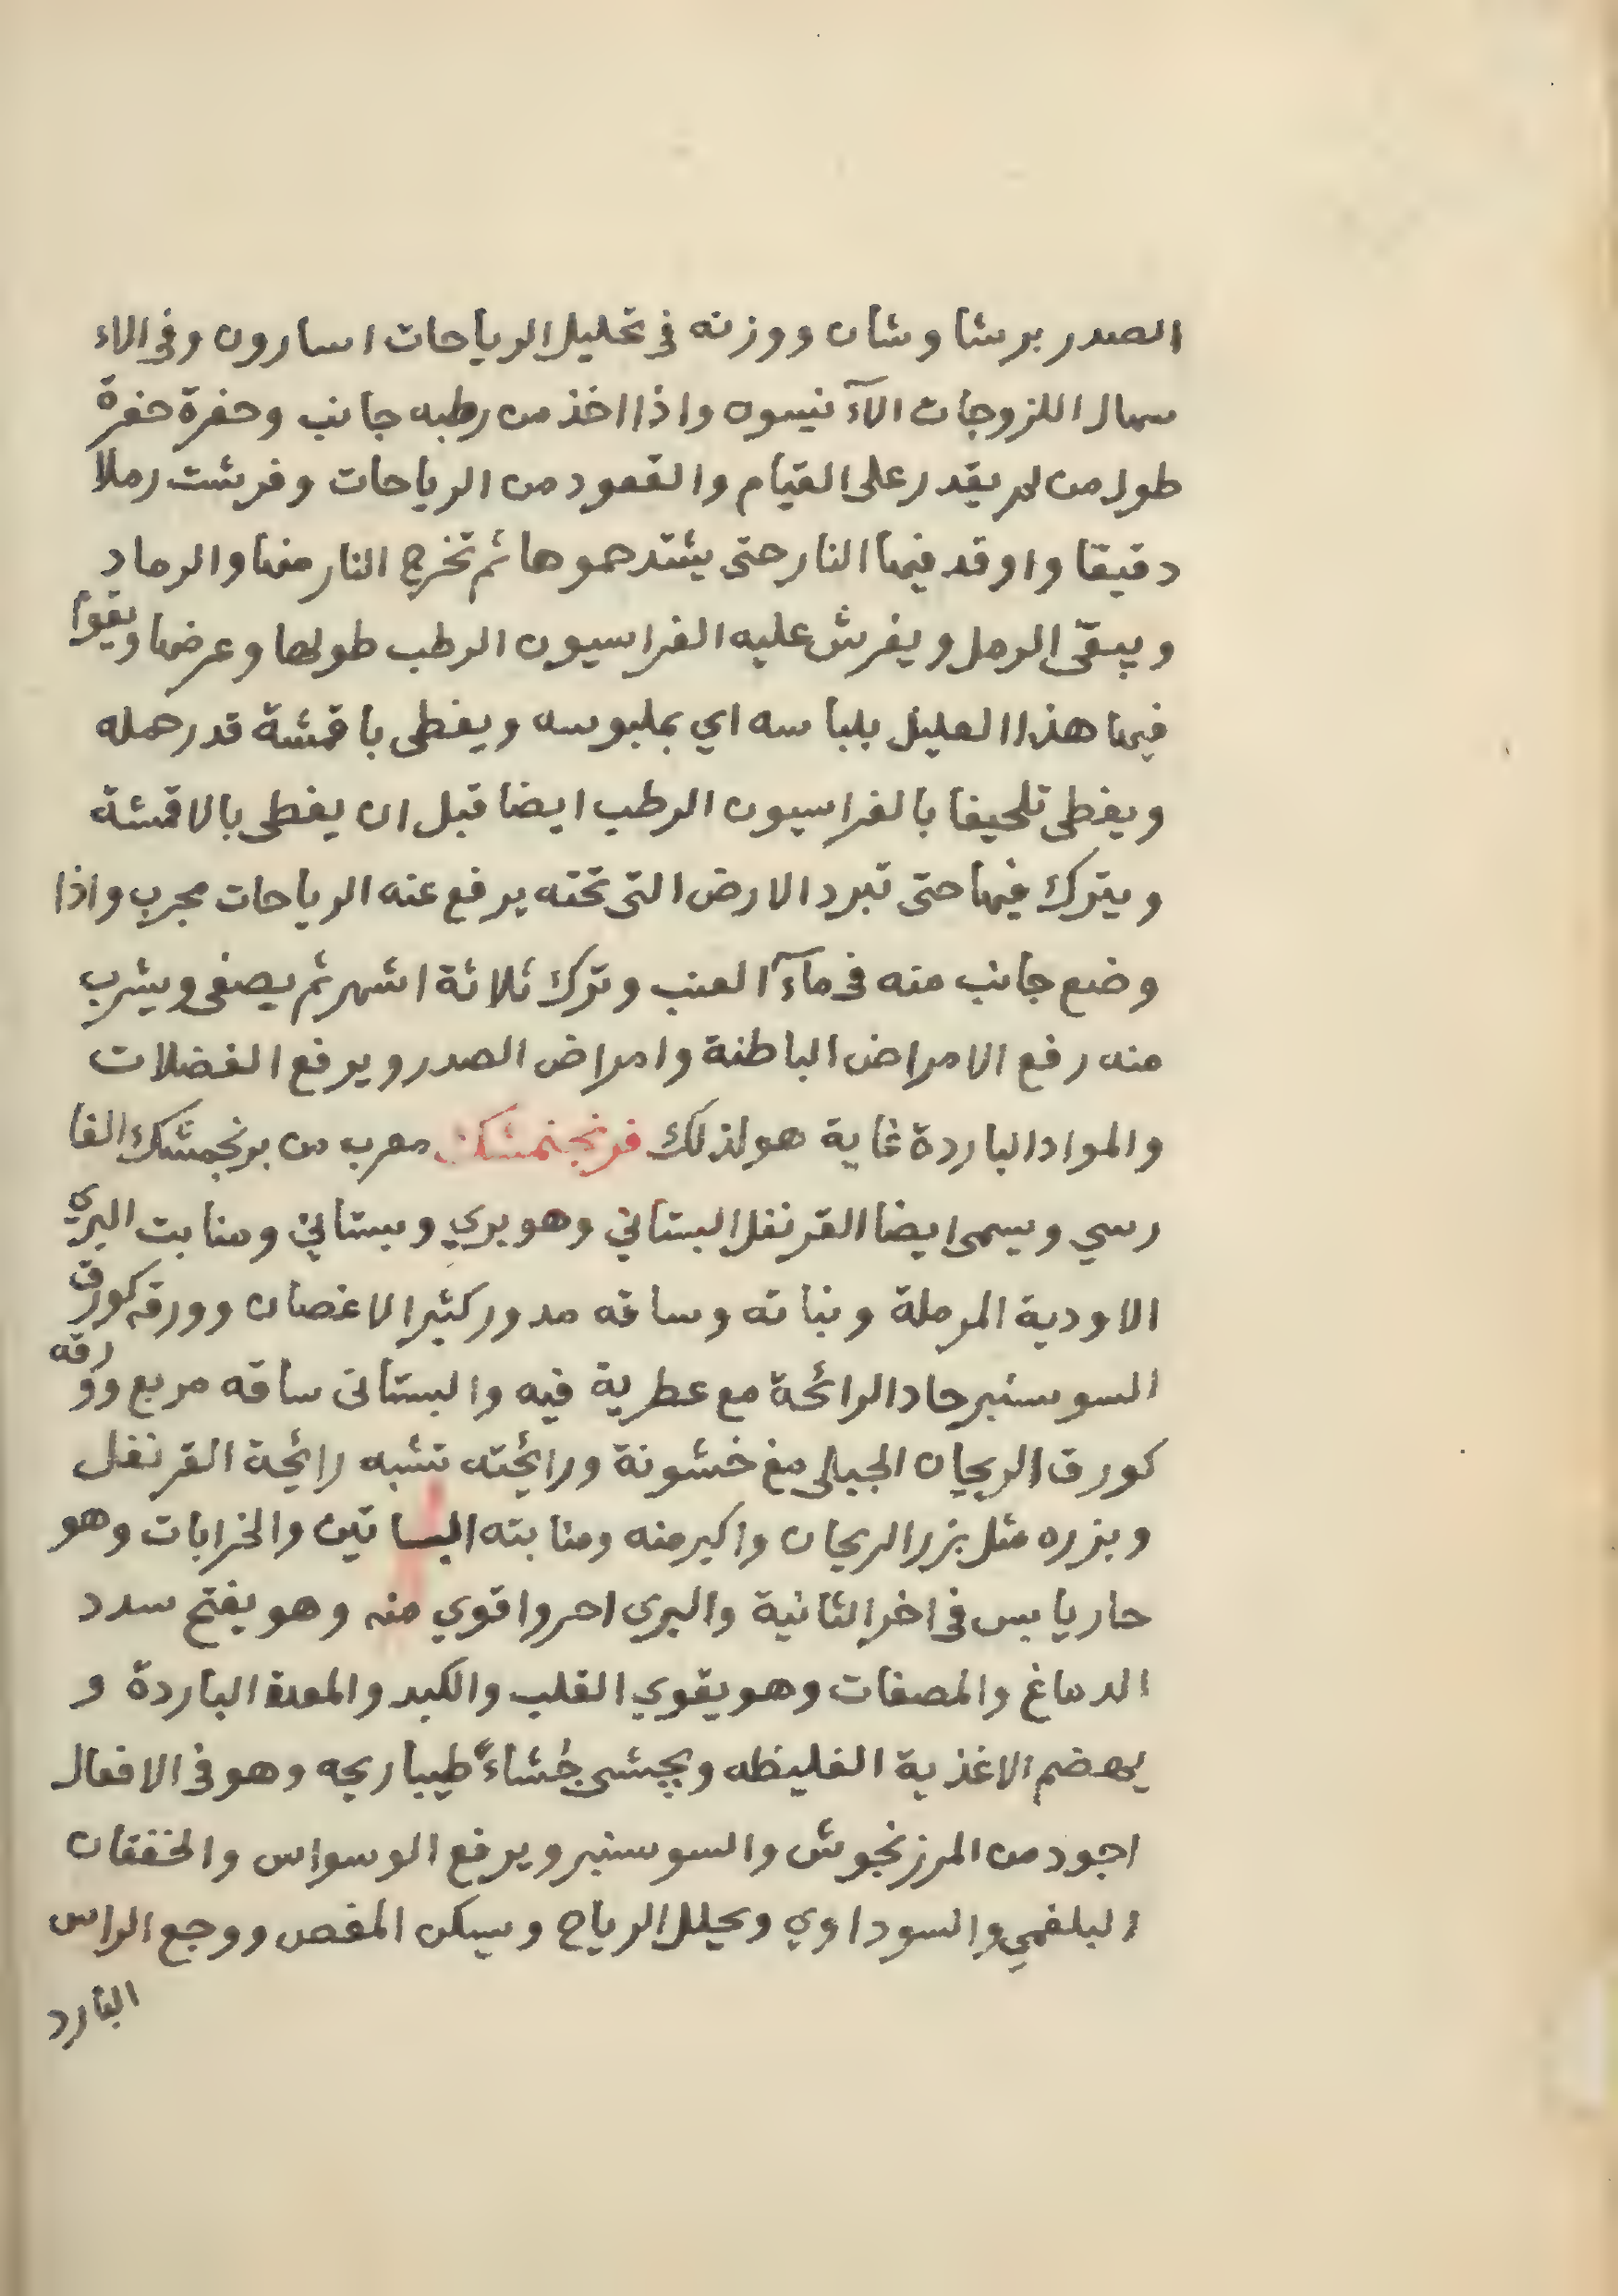 الصدر برشاوشان ووزنه في تحليل الرياحات اسارون وفي الاء
سهال اللزوجات الآنيسون واذا اخذ من رطبه جانب وحفرة حفرة
طول من لم يقدر على القيام والقعود من الرياحات وفرشت رملا
دقيقا واوقد فيها النار حتى يشتد حموها ثم تخرج النار منها والرماد
ويبقى الرمل ويفرش عليه الفراسيون الرطب طولها وعرضها ويقوا
فيها هذا العليل بلباسه اي بملبوسه ويغطى باقمشة قدر حمله
ويغطى تلحيفا بالفراسيون الرطب ايضا قبل ان يغطى بالاقمشة
ويترك فيها حتى تبرد الارض التى تحته يرفع عنه الرياحات مجرب واذا
وضع جانب منه في مآء العنب وترك ثلاثة اشهر ثم يصفى ويشرب
منه رفع الامراض الباطنة وامراض الصدر ويرفع الفضلات
والمواد الباردة غاية هو لذلك فرنجنمشك معرب من برنجمشك الفا
رسي ويسمى ايضا القرنفل البستاني وهو بري وبستاني ومنابت البري
الاودية المرملة ونباته وساقه مدور كثير الاغصان وورقه كورق
السوسنبر حاد الرائحة مع عطرية فيه والبستانى ساقه مربع وورقه
كورق الريحان الجبلى مع خشونة ورائحته تشبه رائحة القرنفل
وبزره مثل بزر الريحان واكبر منه ومنابته البساتين والخرابات وهو
حار يابس في اخر الثانية والبرى احر واقوي منه وهو يفتح سدد
الدماغ والمصفات وهو يقوي القلب والكبد والمعدة الباردة و
يهضم الاغذية الغليظه ويجشى جُشاءً طيبا ريحه وهو في الافعال
اجود من المرزنجوش والسوسنبر ويرفع الوسواس والخفقان
البلغمي والسوداوي ويحلل الرياح ويسكن المغص ووجع الراس
البارد